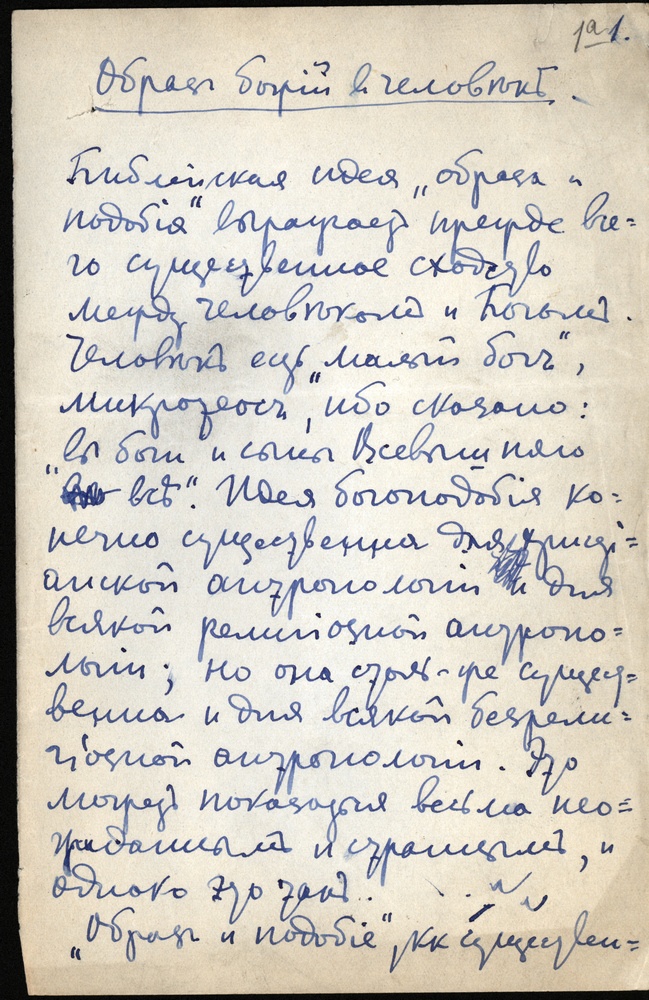 1а 1.
Образъ Божій въ человѣкѣ.
Библейская идея „образа и
подобія“ выражаетъ прежде все=
го существенное сходство
между человѣкомъ и Богомъ.
Человѣкъ есть „малый богъ“,
микротеосъ, ибо сказано:
„вы боги и сыны Всевышняго
всѣ“. Идея богоподобія ко=
нечно существенна для христі=
анской антропологіи и для
всякой религіозной антропо=
логіи; но она столь-же сущест=
венна и для всякой безрели=
гіозной антропологіи. Это
можетъ показаться весьма нео=
жиданнымъ и страннымъ, и
однако это такъ.
„Образъ и подобіе“, кк существен=